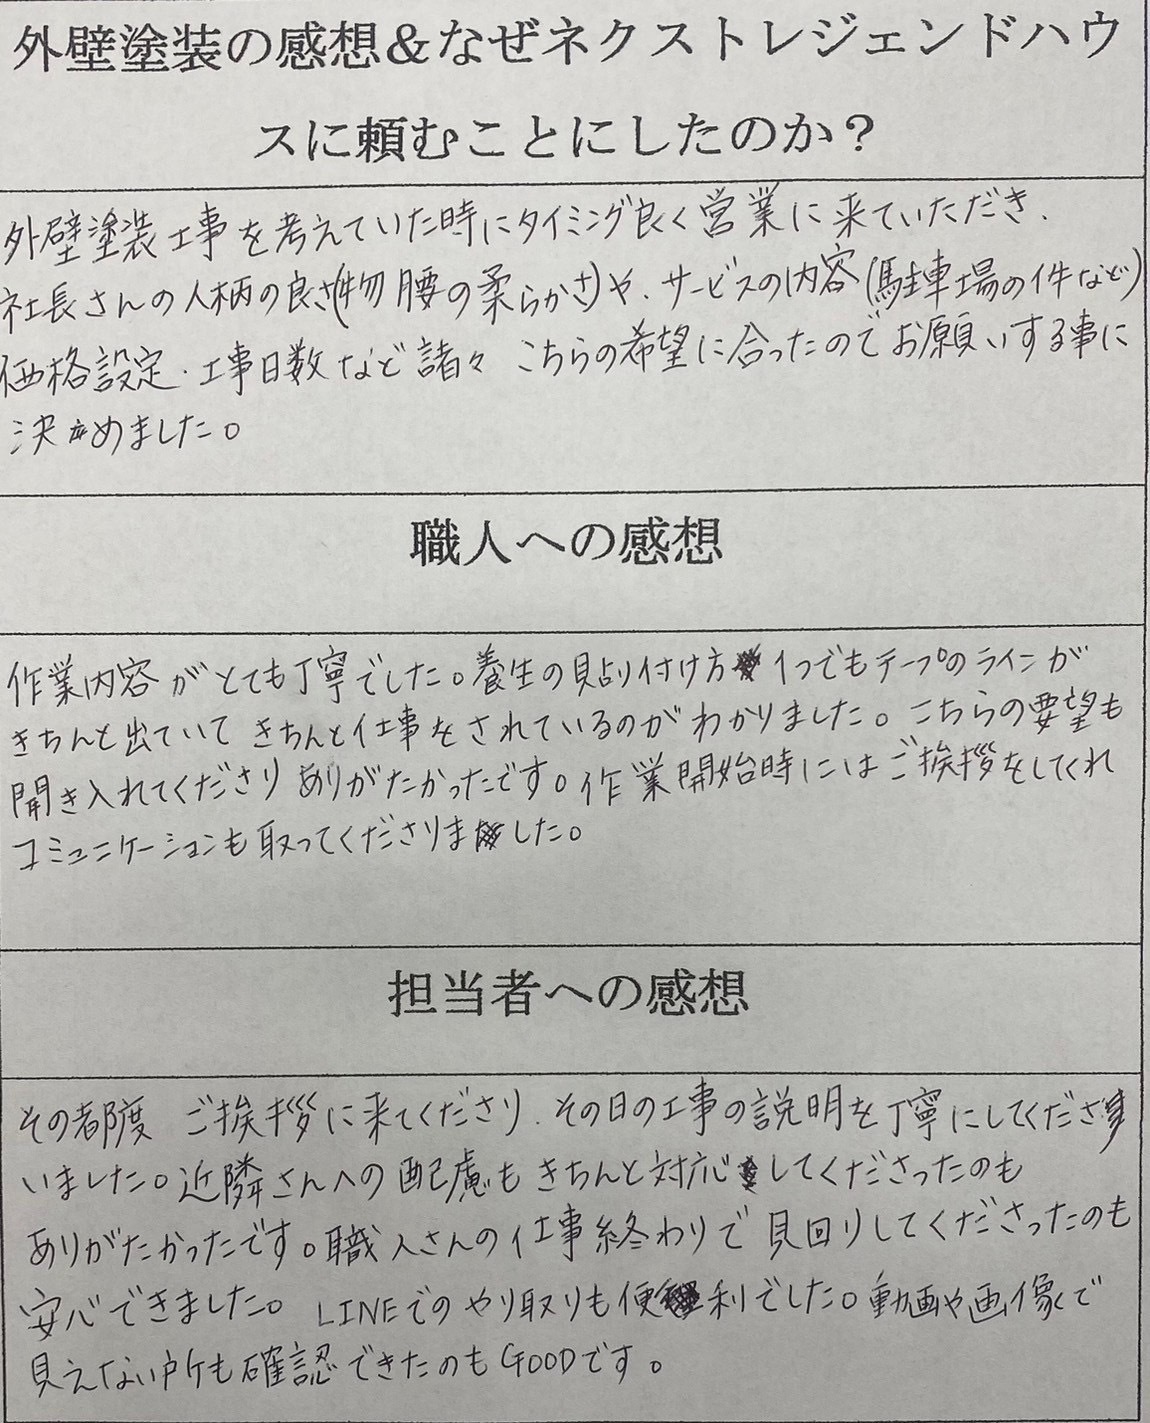 外壁塗装の感想&なぜネクストレジェンドハウ
スに頼むことにしたのか?
外壁塗装工事を考えていた時にタイミング良く営業に来ていただき、
社長さんの人柄の良さ(物腰の柔らかさ)や、サービスの内容(駐車場の件など)
価格設定、工事日数など諸々 こちらの希望に合ったのでお願いする事に
決めました。
職人への感想
作業内容がとても丁寧でした。養生の貼り付け方1つでもテープのラインが
きちんと出ていて きちんと仕事をされているのがわかりました。こちらの要望も
聞き入れてくださり ありがたかったです。作業開始時にはご挨拶をしてくれ
コミュニケーションも取ってくださりました。
担当者への感想
その都度 ご挨拶に来てくださり、その日の工事の説明を丁寧にしてくださ
いました。近隣さんへの配慮もきちんと対応してくださったのも
ありがたかったです。職人さんの仕事終わりで見回りしてくださったのも
安心できました。LINEでのやり取りも便利でした。動画や画像で
見えない所も確認できたのもGOODです。